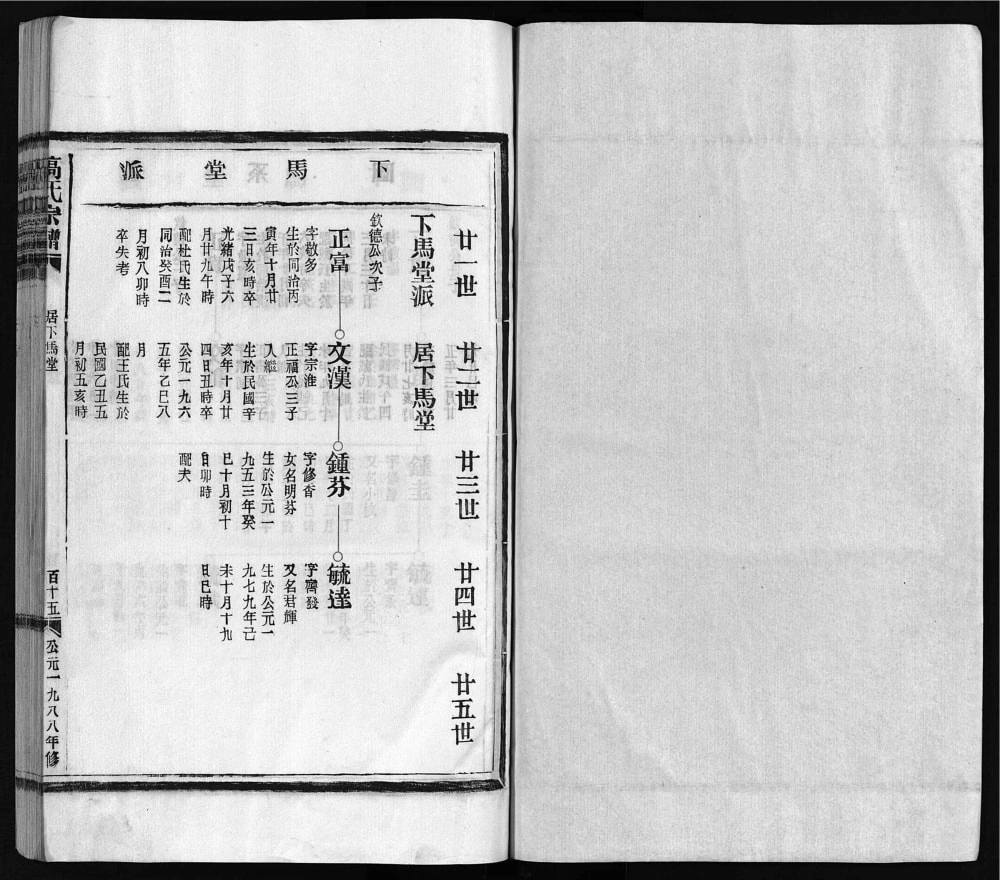 下馬堂派
廿一世
廿二世
廿三世
廿四世
廿五世
下馬堂派
居下馬堂
欽德公次子
正富
字敬多
生於同治丙
寅年十月廿
三日亥時卒
光緒戊子六
月廿九年時
配杜氏生於
同治癸酉二
月初八卯時
卒失考
文漢
字宗淮
正福公三子
入繼
生於民國辛
亥年十月廿
四日丑時卒
公元一九六
五年乙巳八
月
配王氏生於
民國乙丑五
月初五亥時
鍾芬
字修香
女名明芬
生於公元一
九五三年癸
巳十月初十
日卯時
配夫
毓達
字齊發
又名君輝
生於公元一
九七九年己
未十月十九
日巳時
高氏宗譜
居下馬堂
百十五
公元一九八八年修